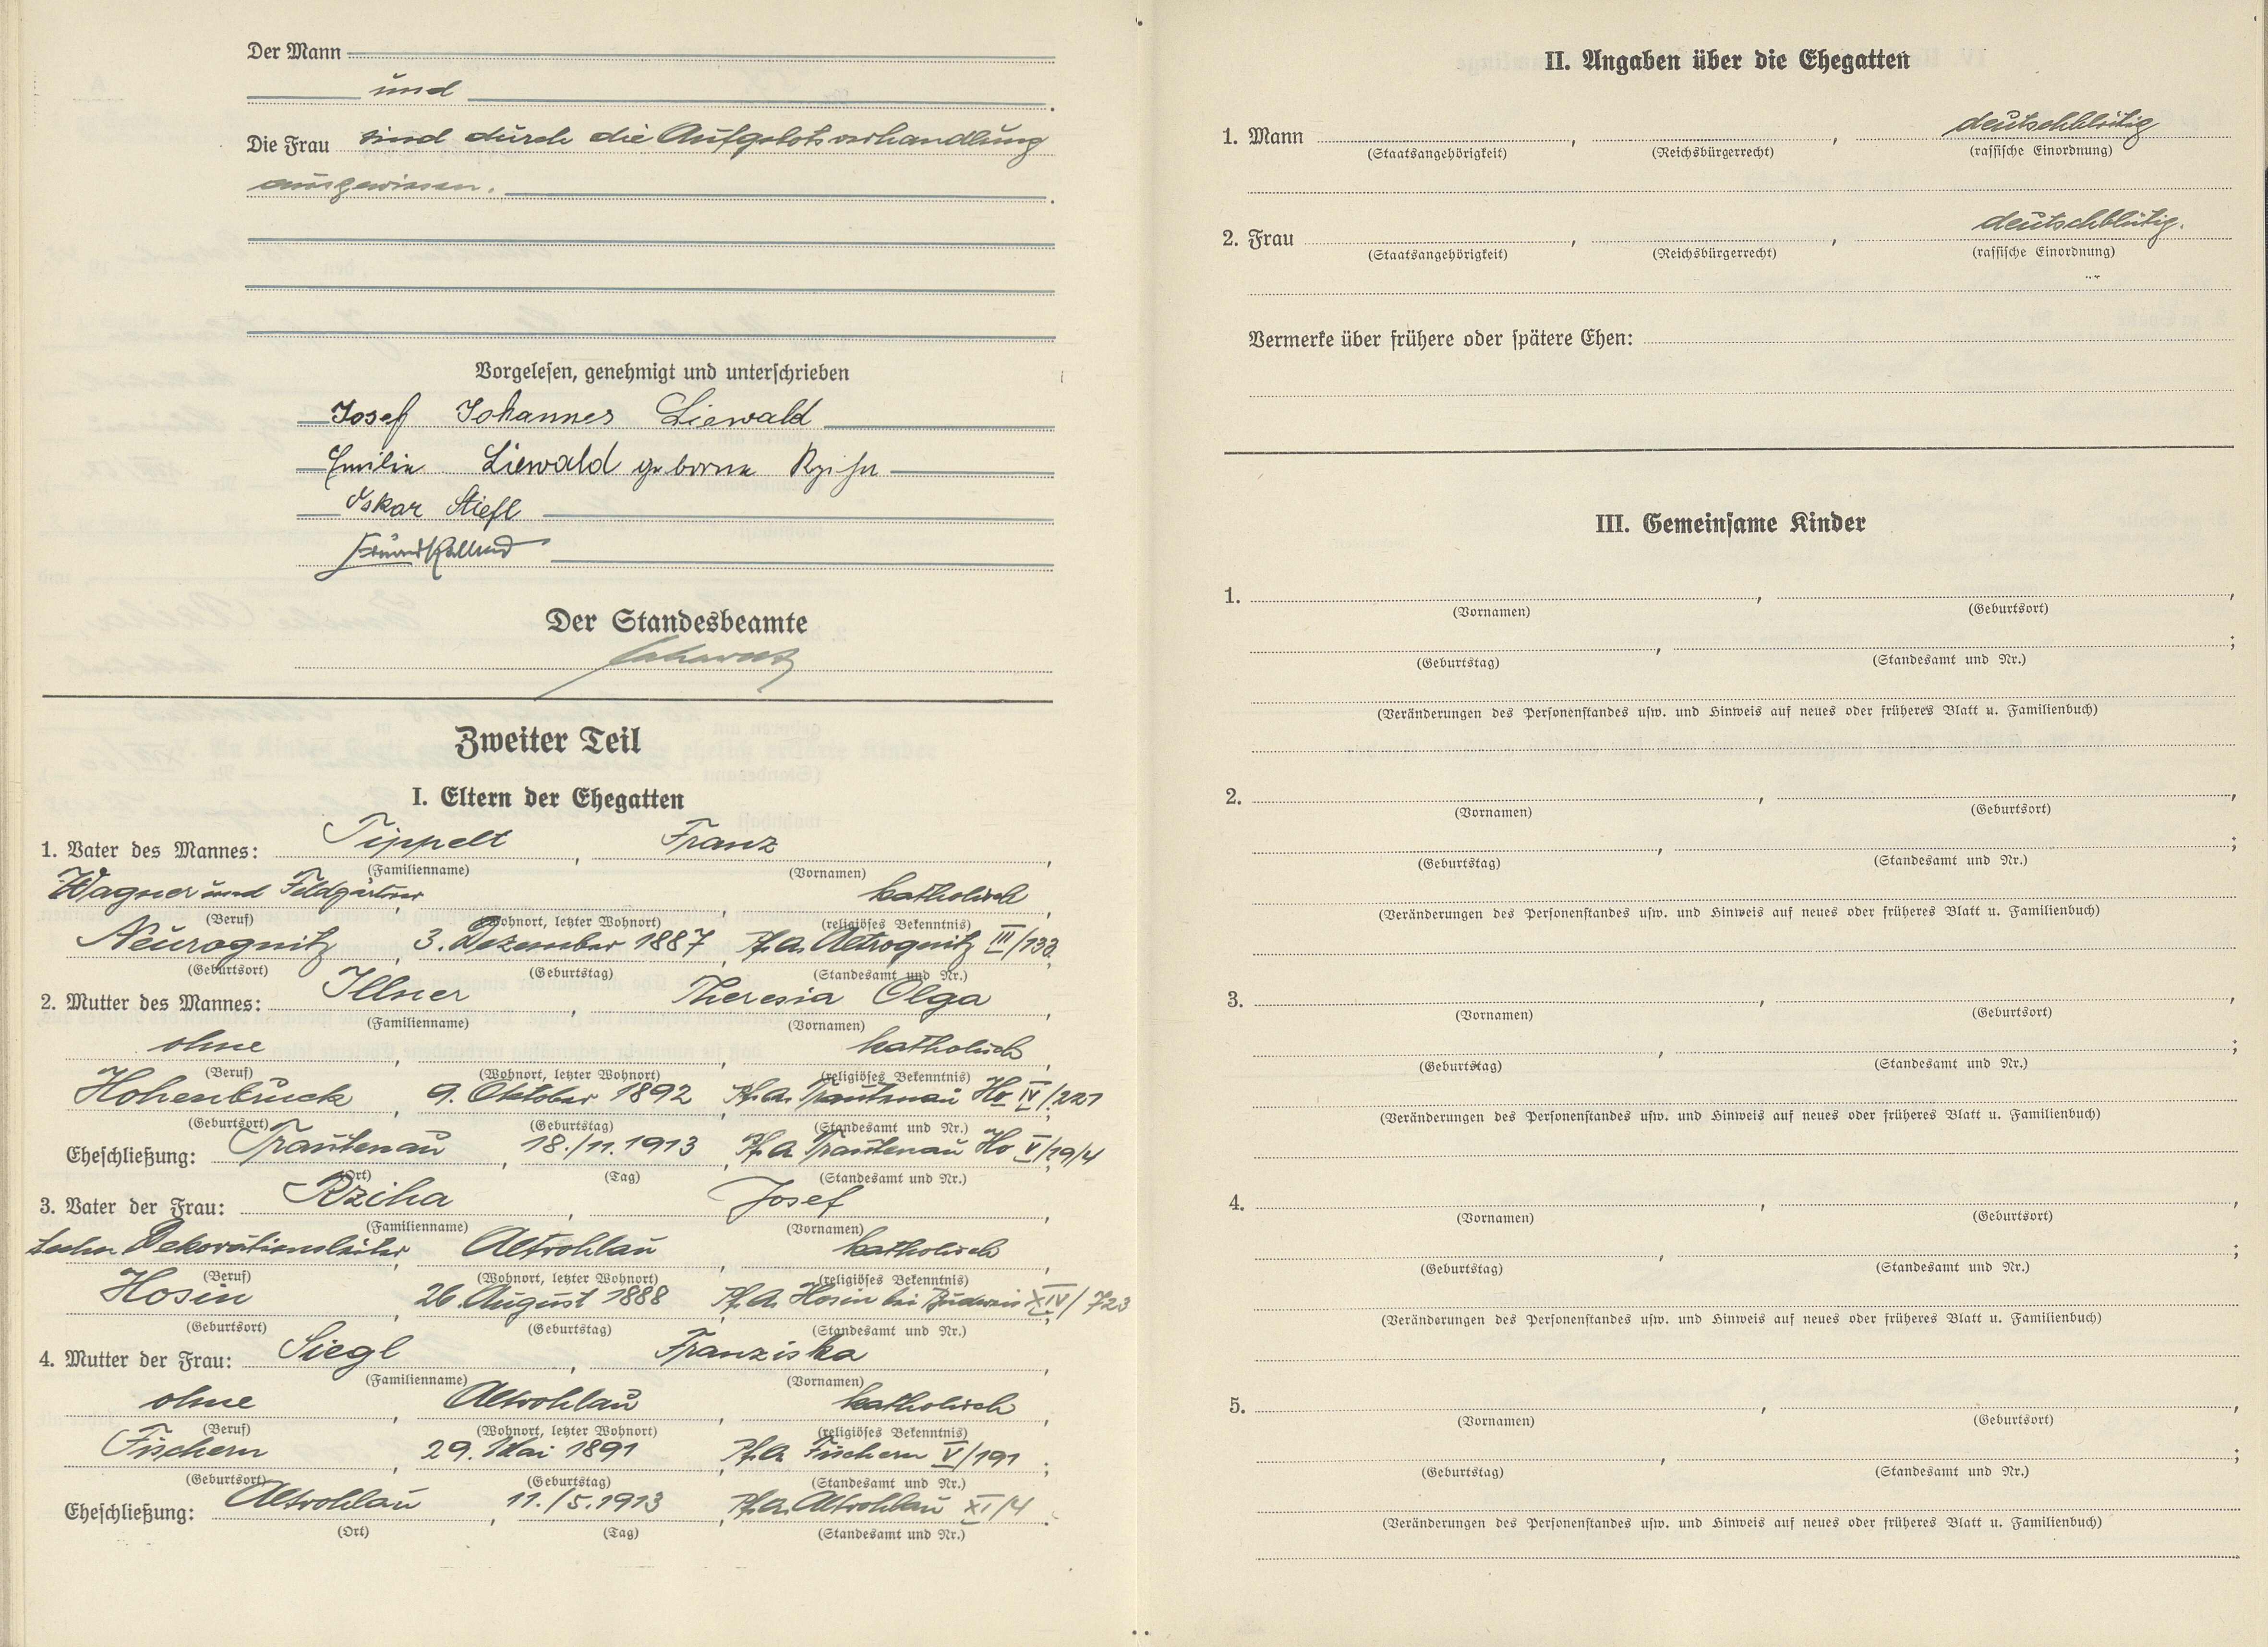 Der Mann
und
Die Frau sind durch die Aufgebotsverhandlung
ausgewiesen.
Vorgelesen, genehmigt und unterschrieben
Josef Johannes Liewald
Emilie Liewald geborne
Oskar Stiefl
Der Standesbeamte
Zweiter Teil
I. Eltern der Ehegatten
1. Vater des Mannes: Tippelt, Franz,
(Familienname) (Vornamen)
Wagner und Feldgärtner, , katholisch,
(Beruf) (Wohnort, letzter Wohnort) (religiöses Bekenntnis)
Neurognitz, 3. Dezember 1887, Pf.A. Altrognitz III/133;
(Geburtsort) (Geburtstag) (Standesamt und Nr.)
2. Mutter des Mannes: Illner, Theresia Olga,
(Familienname) (Vornamen)
ohne, , katholisch,
(Beruf) (Wohnort, letzter Wohnort) (religiöses Bekenntnis)
Hohenbruck, 9. Oktober 1892, Pf.A. Trautenau Ho IV/221;
(Geburtsort) (Geburtstag) (Standesamt und Nr.)
Eheschließung: Trautenau, 18./11.1913, Pf.A Trautenau Ho V/19/4;
(Ort) (Tag) (Standesamt und Nr.)
3. Vater der Frau: Rziha, Josef,
(Familienname) (Vornamen)
techn Dekorationsleiter, Altrohlau, katholisch,
(Beruf) (Wohnort, letzter Wohnort) (religiöses Bekenntnis)
Hosin, 26. August 1888, Pf.A. Hosin bei Budweis XIV/723;
(Geburtsort) (Geburtstag) (Standesamt und Nr.)
4. Mutter der Frau: Siegl, Franziska,
(Familienname) (Vornamen)
ohne, Altrohlau, katholisch,
(Beruf) (Wohnort, letzter Wohnort) (religiöses Bekenntnis)
Fischern, 29. Mai 1891, Pf.A. Fischern V/191;
(Geburtsort) (Geburtstag) (Standesamt und Nr.)
Eheschließung: Altrohlau, 11./5.1913, Pf.A. Altrohlau XI/4.
(Ort) (Tag) (Standesamt und Nr.)
II. Angaben über die Ehegatten
1. Mann , , deutschblütig
(Staatsangehörigkeit) (Reichsbürgerrecht) (rassische Einordnung)
2. Frau , , deutschblütig.
(Staatsangehörigkeit) (Reichsbürgerrecht) (rassische Einordnung)
Vermerke über frühere oder spätere Ehen:
III. Gemeinsame Kinder
1. , ,
(Vornamen) (Geburtsort)
, ;
(Geburtstag) (Standesamt und Nr.)
(Veränderungen des Personenstandes usw. und Hinweis auf neues oder früheres Blatt u. Familienbuch)
2. , ,
(Vornamen) (Geburtsort)
, ;
(Geburtstag) (Standesamt und Nr.)
(Veränderungen des Personenstandes usw. und Hinweis auf neues oder früheres Blatt u. Familienbuch)
3. , ,
(Vornamen) (Geburtsort)
, ;
(Geburtstag) (Standesamt und Nr.)
(Veränderungen des Personenstandes usw. und Hinweis auf neues oder früheres Blatt u. Familienbuch)
4. , ,
(Vornamen) (Geburtsort)
, ;
(Geburtstag) (Standesamt und Nr.)
(Veränderungen des Personenstandes usw. und Hinweis auf neues oder früheres Blatt u. Familienbuch)
5. , ,
(Vornamen) (Geburtsort)
, ;
(Geburtstag) (Standesamt und Nr.)
(Veränderungen des Personenstandes usw. und Hinweis auf neues oder früheres Blatt u. Familienbuch)